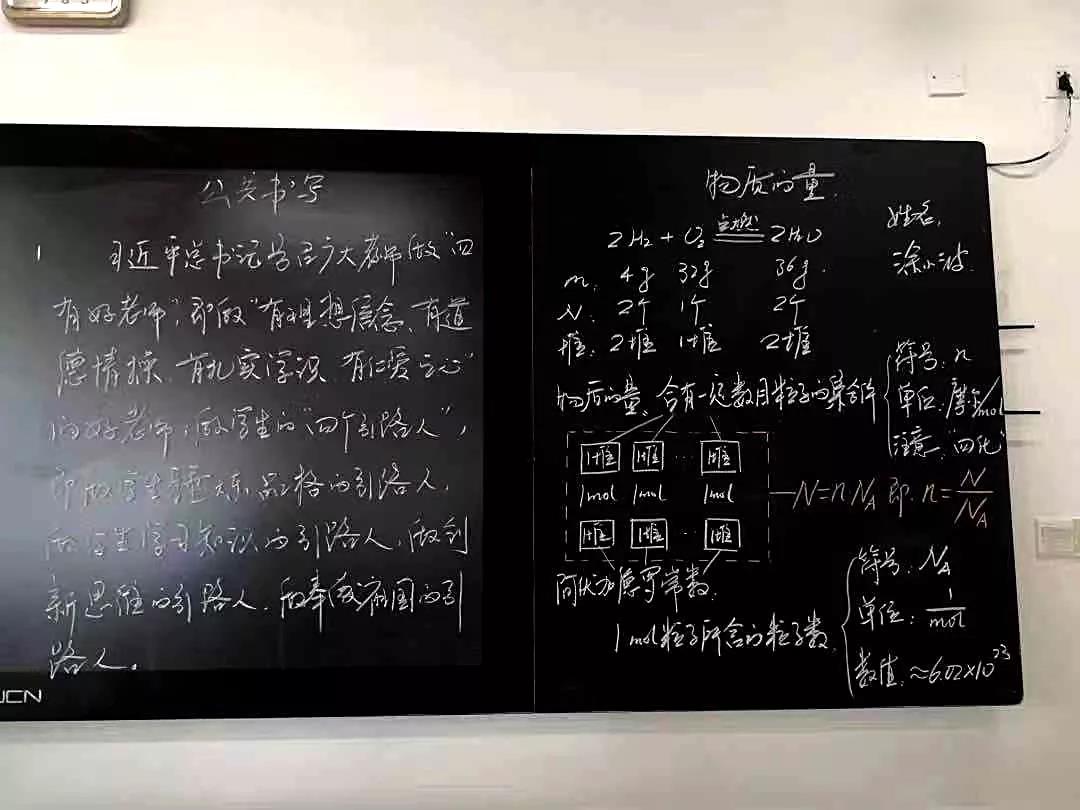 公共书写
习近平总书记号召广大教师做"四
有好老师",即做"有理想信念、有道
德情操、有扎实学识、有仁爱之心"
的好老师;做学生的"四个引路人",
即做学生锤炼品格的引路人,
做学生学习知识的引路人,做创
新思维的引路人,做奉献祖国的引
路人。
UCN
物质的量
2H₂ + O₂ 点燃 2H₂O
m: 4g 32g 36g
N: 2个 1个 2个
堆: 2堆 1堆 2堆
物质的量、含有一定数目粒子的集合体
1堆 1堆 ··· 1堆
1mol 1mol 1mol
1堆 1堆 ··· 1堆
阿伏加德罗常数.
1mol粒子所含的粒子数
姓名:
涂小波
符号: n
单位: 摩尔/mol
注意: "四化"
N=n NA 即: n=N/NA
符号: NA
单位: 1/mol
数值: ≈6.02×10²³